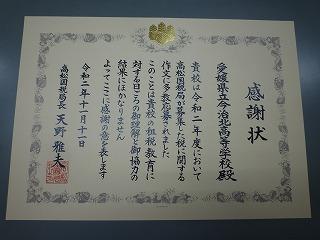 感謝状
愛媛県立今治北高等学校殿
貴校は令和二年度において
高松国税局が募集した税に関する
作文に多数応募されました
このことは貴校の租税教育に
対する日ごろの御理解と御協力の
結果にほかなりません
よってここに感謝の意を表します
令和二年十一月十一日
高松国税局長 天野雅夫